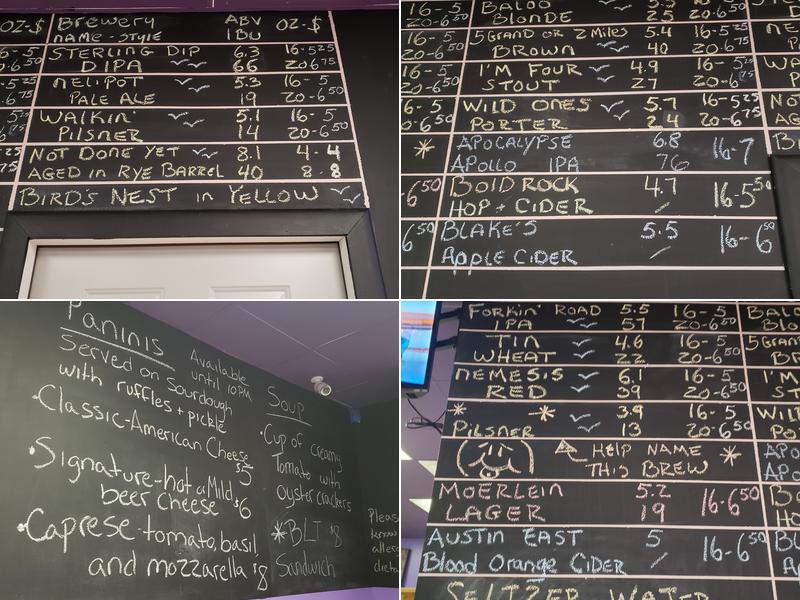 OZ-$ BREWERY ABV OZ-$
NAME-STYLE IBU
16-5 STERLING DIP 6.3 16-5.25
DIPA 66 20-6.75
NELIPOT 5.3 16-5
PALE ALE 19 20-6.50
WALKIN' 5.1 16-5
PILSNER 14 20-6.50
NOT DONE YET 8.1 4-4
AGED IN RYE BARREL 40 8-8
BIRD'S NEST IN YELLOW
16-5 BALOO 5.3 16-5
20-6.50 BLONDE 25 20-6.50
5 GRAND OR 2 MILES 5.4 16-5.25
BROWN 40 20-6.75
16-5 I'M FOUR 4.9 16-5.25
20-6.50 STOUT 27 20-6.75
6-5 WILD ONES 5.7 16-5.25
0-6.50 PORTER 24 20-6.75
* APOCALYPSE 6.8 16-7
APOLLO IPA 76
6.50 BOLD ROCK 4.7 16-5.50
HOP + CIDER /
6.50 BLAKE'S 5.5 16-6.50
APPLE CIDER /
PANINIS
Served on Sourdough
with ruffles + pickle
Available
until 10PM
•Classic-American Cheese
$5
•Signature-hot or Mild
beer cheese $6
•Caprese-tomato, basil,
and mozzarella $8
Soup
•Cup of creamy
Tomato with
oyster crackers
*BLT $8
Sandwich
FORKIN' ROAD 5.5 16-5
IPA 57 20-6.50
TIN 4.6 16-5
WHEAT 22 20-6.50
NEMESIS 6.1 16-5
RED 39 20-6.50
* * 3.9 16-5
PILSNER 13 20-6.50
HELP NAME *
THIS BREW
MOERLEIN 5.2 16-6.50
LAGER 19
AUSTIN EAST 5 16-6.50
Blood Orange CIDER /
SELTZER WATER